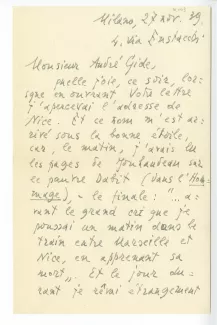 Milano, 27 nov. 39.
4, via Eustachi
Monsieur André Gide,
quelle joie, ce soir, lors-
que en ouvrant Votre lettre
j'apercevai l'adresse de
Nice. Et ce nom m'est ar-
rivé sous la bonne étoile,
car, le matin, j'avais lu
les pages de sur
ce pauvre Dabit (dans l'Hom-
mage), - le finale: "... a-
vant le grand cri que je
poussai un matin dans le
train entre Marseille et
Nice, en apprenant sa
mort". Et le jour du-
rant je rêvai étrangement